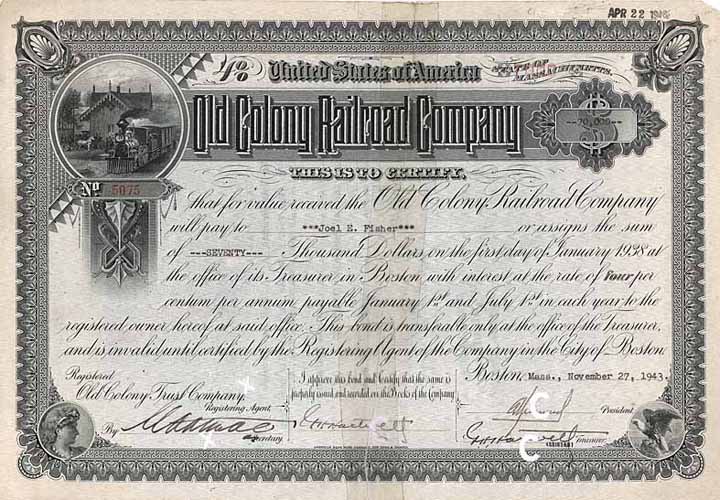 APR 22
4%
United States of America
STATE OF
MASSACHUSETTS.
Old Colony Railroad Company
$
--70,000--
THIS IS TO CERTIFY,
No. 5075
that for value received the Old Colony Railroad Company
will pay to ***Joel E. Fisher*** or assigns the sum
of ---SEVENTY--- Thousand Dollars on the first day of January 1938 at
the office of its Treasurer in Boston with interest at the rate of Four per
centum per annum payable January 1st and July 1st in each year to the
registered owner hereof at said office. This bond is transferable only at the office of the Treasurer,
and is invalid until certified by the Registering Agent of the Company in the City of Boston.
Boston, Mass., November 27, 1943.
Registered:
Old Colony Trust Company.
Registering Agent,
By
Secretary.
I approve this bond and Certify that the same is
properly issued and recorded on the Books of the Company
President
Treasurer.
ASSISTANT